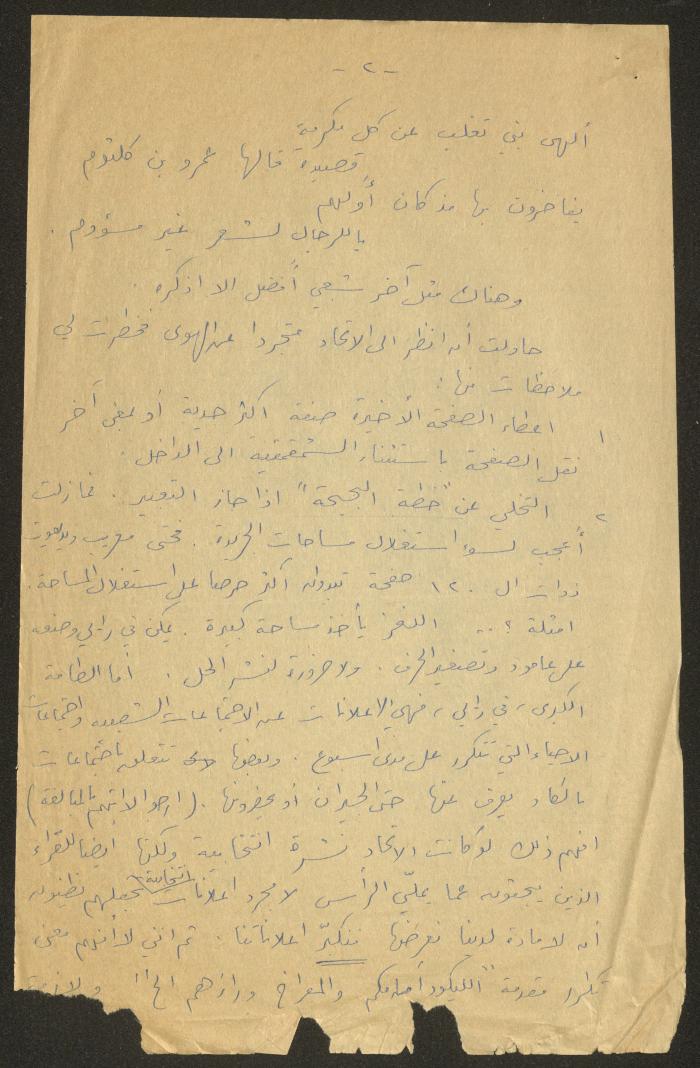 - ٢ -
ألهى بني تغلب عن كل مكرمة
قصيدة قالها عمرو بن كلثوم
يفاخرون بها مذ كان أولهم
يا للرجال لشعر غير مسؤوم .
وهناك مثل آخر شعبي أفضل الا اذكره .
حاولت أن انظر الى الاتحاد متجردا عن الهوى فخطرت لي
ملاحظات منها :
١ اعطاء الصفحة الأخيرة صفة اكثر جدية أو بمعنى آخر
نقل الصفحة باستثناء الشمقمقية الى الداخل .
٢ التخلي عن "خطة البحبحة" اذا جاز التعبير . فما زلت
أعجب لسوء استغلال مساحات الجريدة . فحتى معريب ويديعوت
ذوات ال ١٢٠ صفحة تبدوان أكثر حرصا على استغلال المساحة .
امثلة ؟ .. اللغز يأخذ مساحة كبيرة . يمكن في رأيي وضعه
على عامود وتصغير الحرف . ولا ضرورة لنشر الحل . أما الطامة
الكبرى ، في رأيي ، فهي الاعلانات عن الاجتماعات الشعبية واجتماعات
الاحياء التي تتكرر على مدى اسبوع . وبعضها تتعلق باجتماعات
بالكاد يعرف عنها حتى الجيران أو يحضرونها . (ارجو الا اتهم بالمبالغة)
افهم ذلك لو كانت الاتحاد نشرة انتخابية ولكنها ايضا للقراء
الذين يبحثون عما يملّي الرأس لا مجرد اعلانات انتخابية تجعلهم يظنون
أن لا مادة لدينا نعرضها فنكبّر اعلاناتنا . ثم انني لا أفهم معنى
تكرار مقدمة "الليكود أمامكم والمعراخ وراءكم الخ"